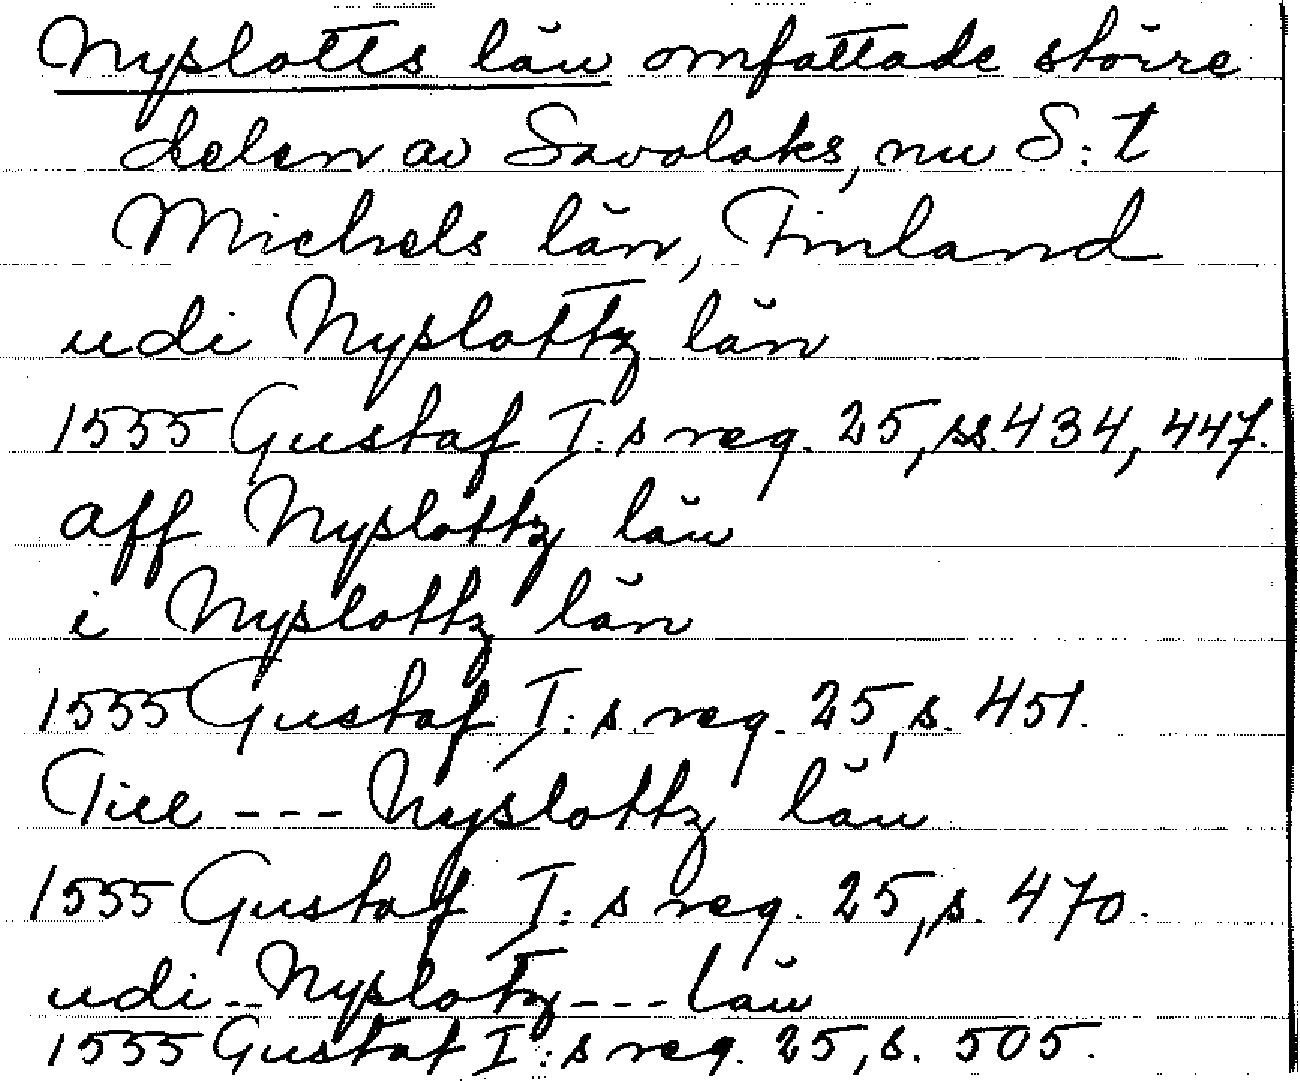 Nyslotts län omfattade större
delen av Savolaks, nu S:t
Michels län, Finland
udi Nyslottz län
1555 Gustaf I:s reg. 25, ss. 434, 447.
aff Nyslottz län
i Nyslottz län
1555 Gustaf I:s reg. 25, s. 451.
Till --- Nyslottz län
1555 Gustaf I:s reg. 25, s. 470.
udi -- Nyslotz --- län
1555 Gustaf I:s reg. 25, s. 505.